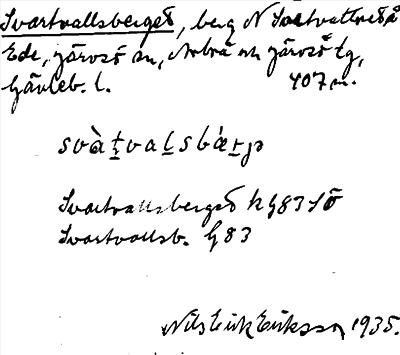 Svartvallsberget, berg N Svartvallviå
Ede, Järvsö sn, Arbrå och Järvsö tg,
Gävleb. l. 407 m.
svàṭvaḷsbæ̀rjə
Svartvallsberget k G83 SÖ
Svartvallsb. G83
Nils Erik Eriksson 1935.